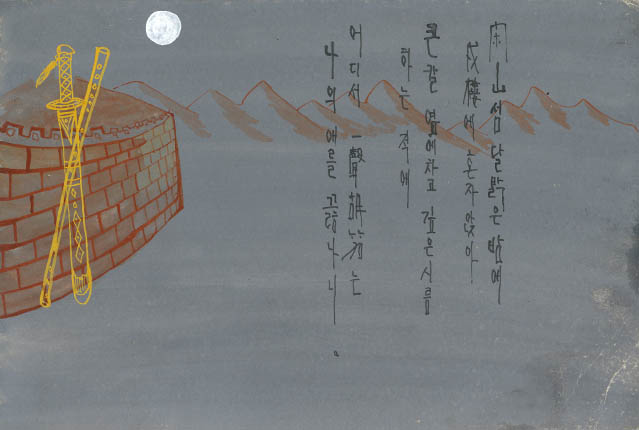 閑山섬 달 밝은 밤에
戍樓에 혼자 앉아
큰 칼 옆에 차고 깊은 시름
하는 적에
어디서 一聲胡笳는
나의 애를 끊나니。